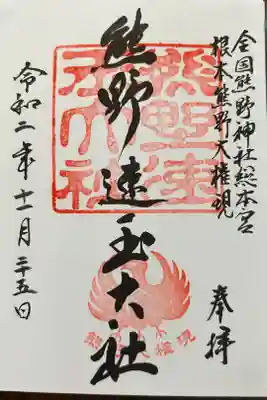 全国熊野神社総本宮
根本熊野大権現
奉拝
熊野速玉大社
熊野速
玉大社
熊 権現
令和二年十一月二十五日